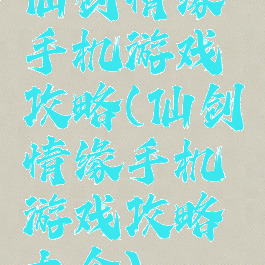 仙剑情缘
手机游戏
攻略(仙剑
情缘手机
游戏攻略
大全)